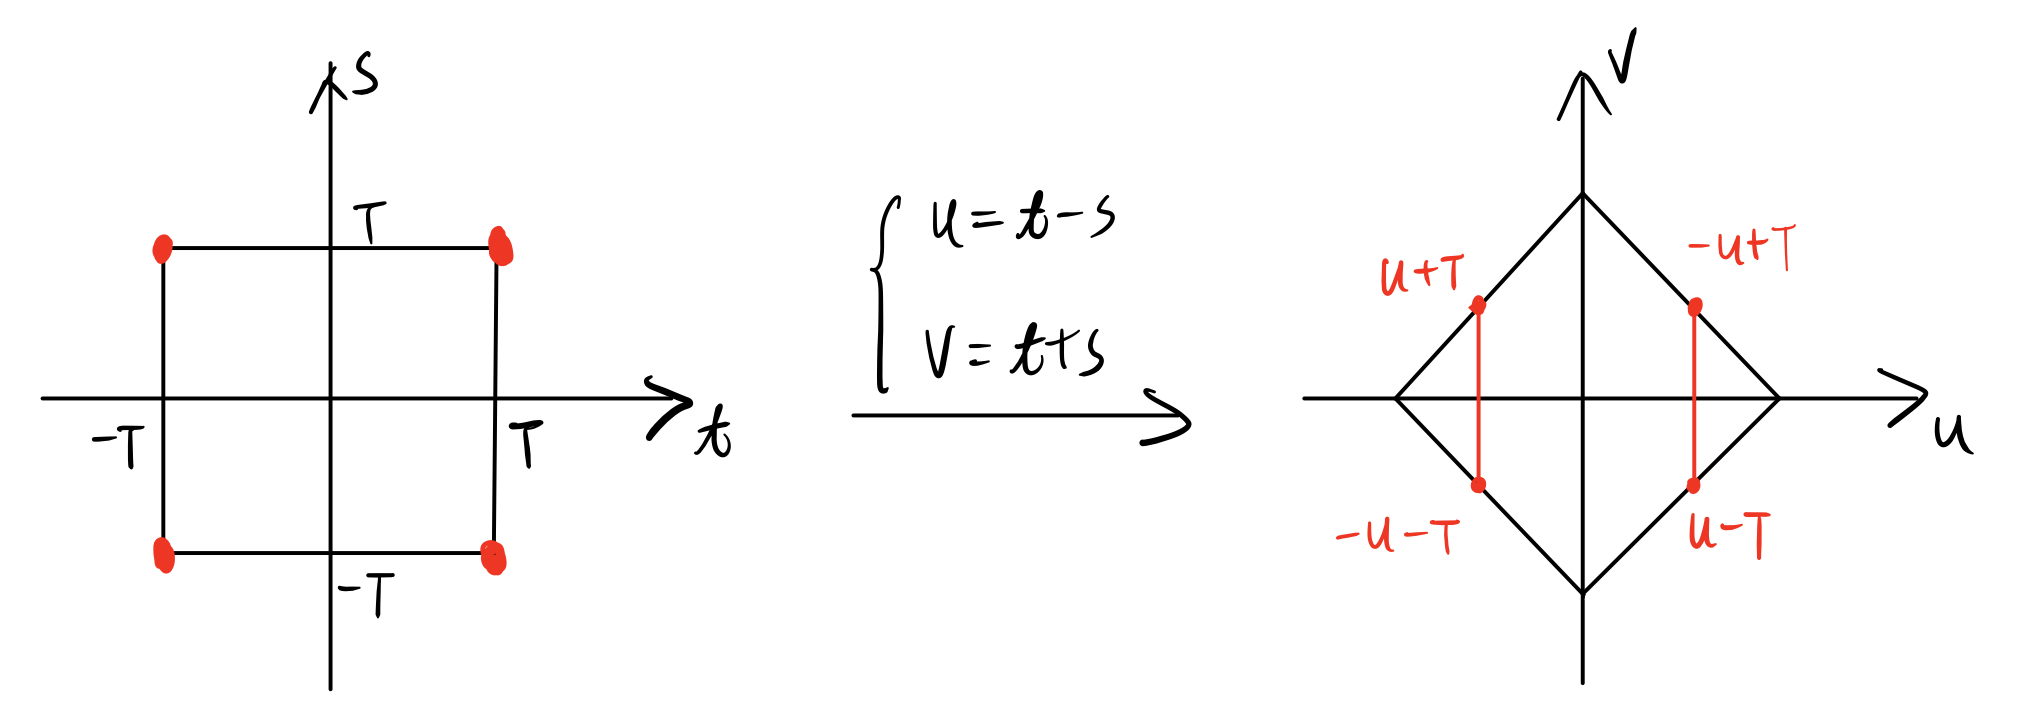 s
T
-T
T
t
-T
u=t-s
v=t+s
v
u+T
-u+T
u
-u-T
u-T